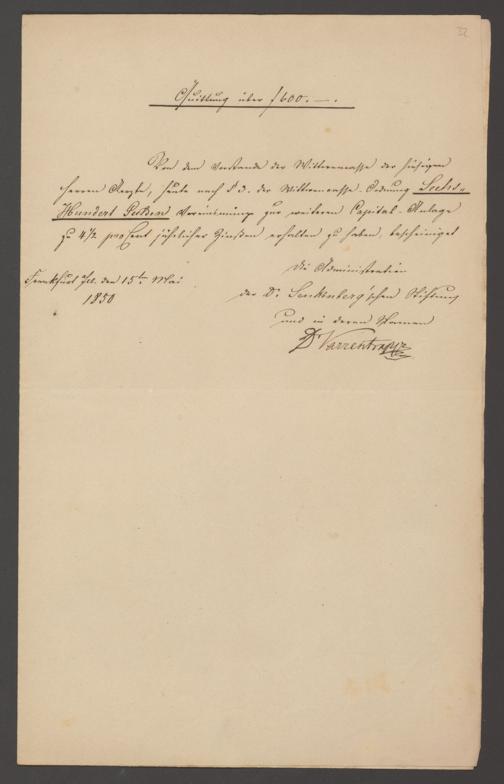 32
Quittung über f 600.—.
Von dem Vorstande der Wittwencasse der hiesigen
Herren Aerzte, heute nach § 3. der Wittwencasse-Ordnung Sechs-
Hundert Gulden zur weiteren Capital-Anlage
zu 4½ pro Cent jährlicher Zinsen erhalten zu haben, bescheiniget
Frankfurt a/M. den 15ten Mai
1850
Die Administration
der Dr. Senkenberg'schen Stiftung
und in deren Namen
Dr Varrentrapp